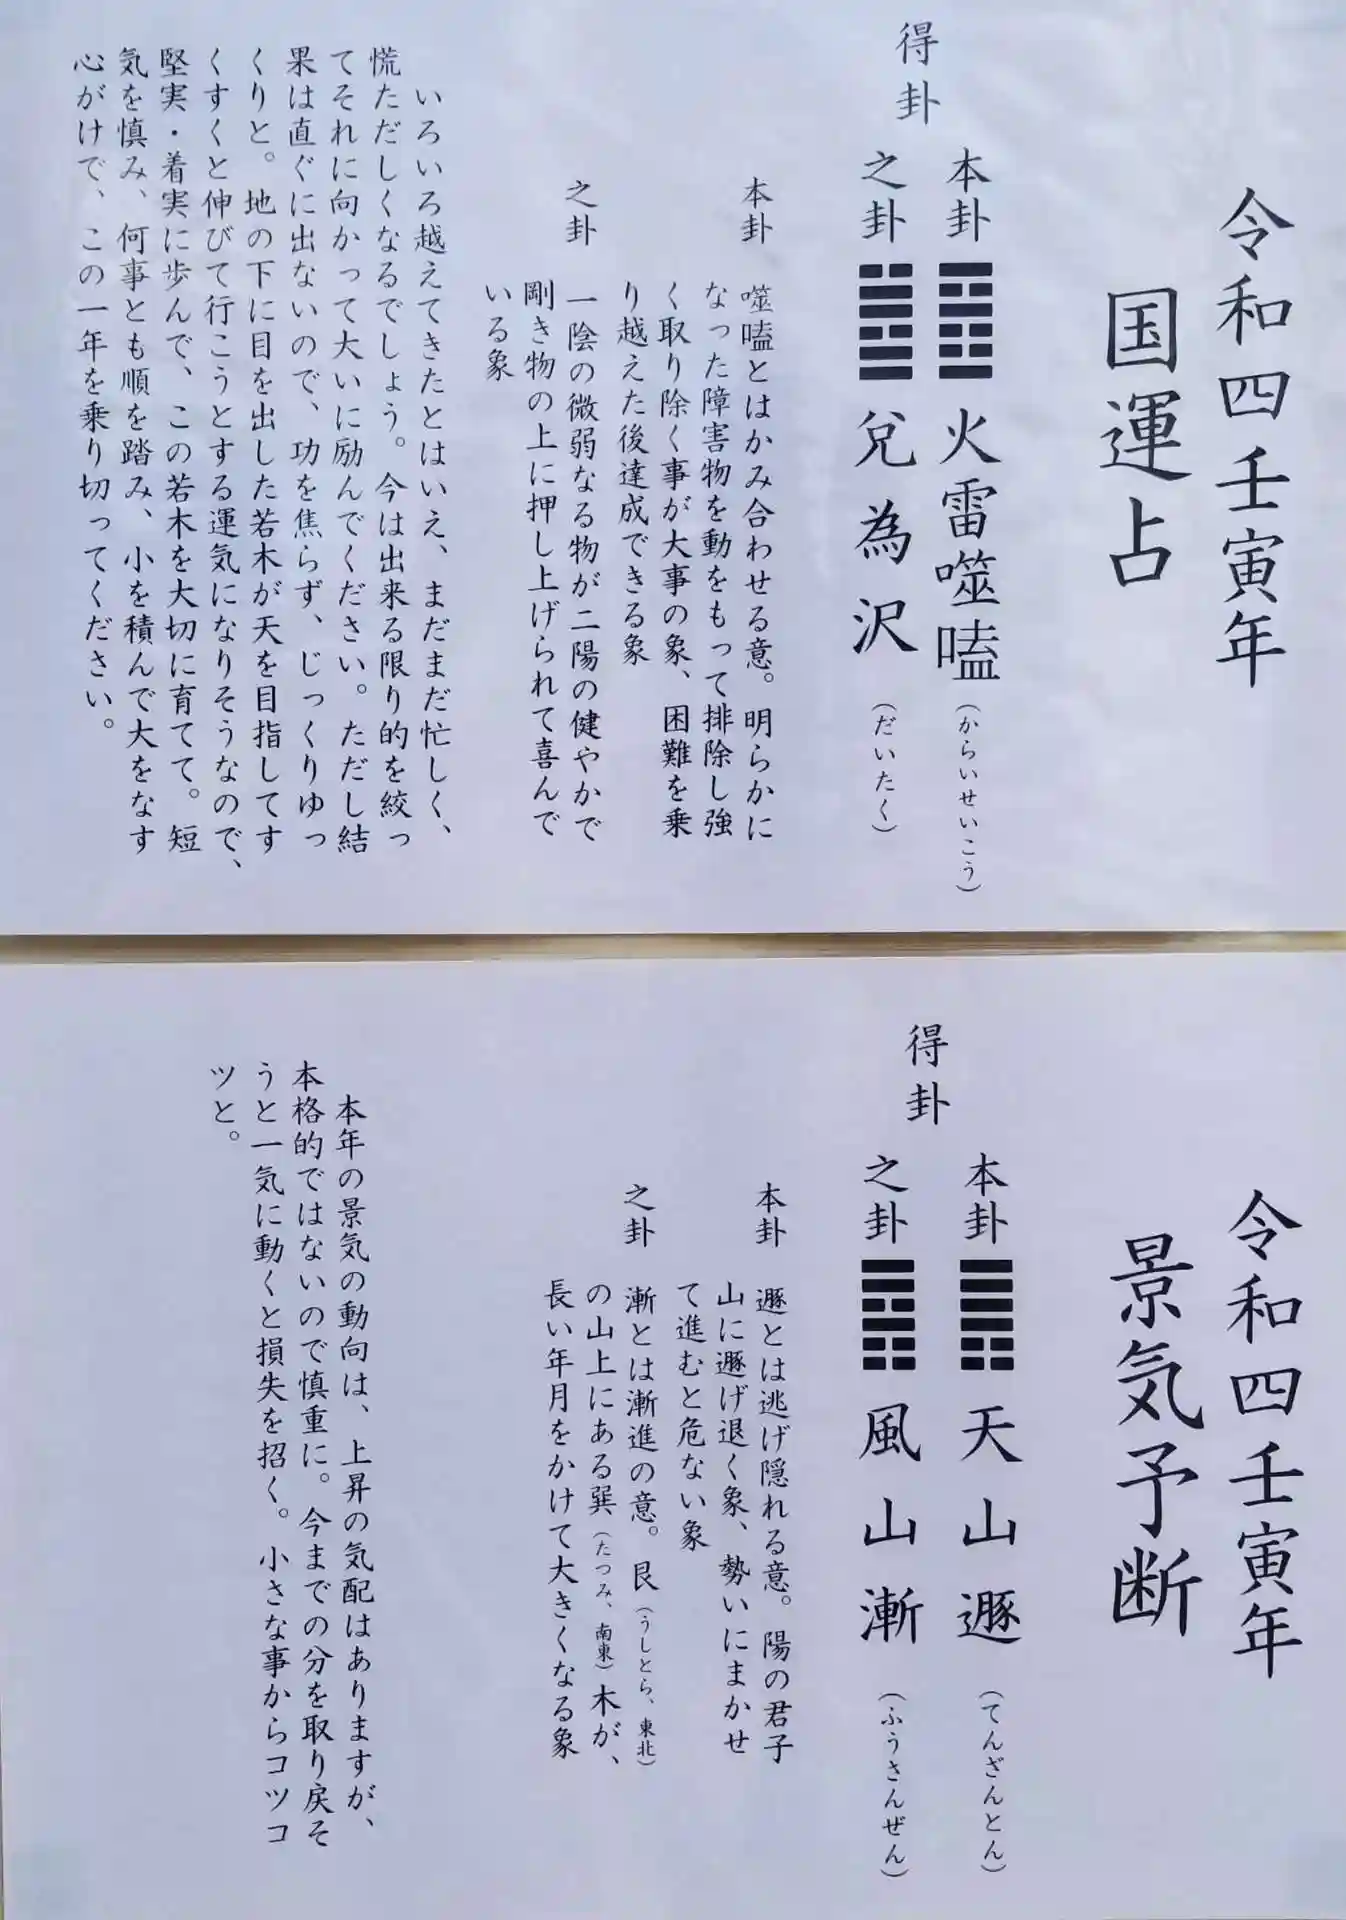 令和四壬寅年
国運占
得卦
本卦 火雷噬嗑（からいせいこう）
之卦 兌為沢（だいたく）
本卦
噬嗑とはかみ合わせる意。明らかに
なった障害物を動をもって排除し強
く取り除く事が大事の象、困難を乗
り越えた後達成できる象
之卦
一陰の微弱なる物が二陽の健やかで
剛き物の上に押し上げられて喜んで
いる象
いろいろ越えてきたとはいえ、まだまだ忙しく、
慌ただしくなるでしょう。今は出来る限り的を絞っ
てそれに向かって大いに励んでください。ただし結
果は直ぐに出ないので、功を焦らず、じっくりゆっ
くりと。地の下に目を出した若木が天を目指してす
くすくと伸びて行こうとする運気になりそうなので、
堅実・着実に歩んで、この若木を大切に育てて。短
気を慎み、何事とも順を踏み、小を積んで大をなす
心がけで、この一年を乗り切ってください。
令和四壬寅年
景気予断
得卦
本卦 天山遯（てんざんとん）
之卦 風山漸（ふうさんぜん）
本卦
遯とは逃げ隠れる意。陽の君子
山に遯げ退く象、勢いにまかせ
て進むと危ない象
之卦
漸とは漸進の意。艮（うしとら、東北）
の山上にある巽（たつみ、南東）木が、
長い年月をかけて大きくなる象
本年の景気の動向は、上昇の気配はありますが、
本格的ではないので慎重に。今までの分を取り戻そ
うと一気に動くと損失を招く。小さな事からコツコ
ツと。